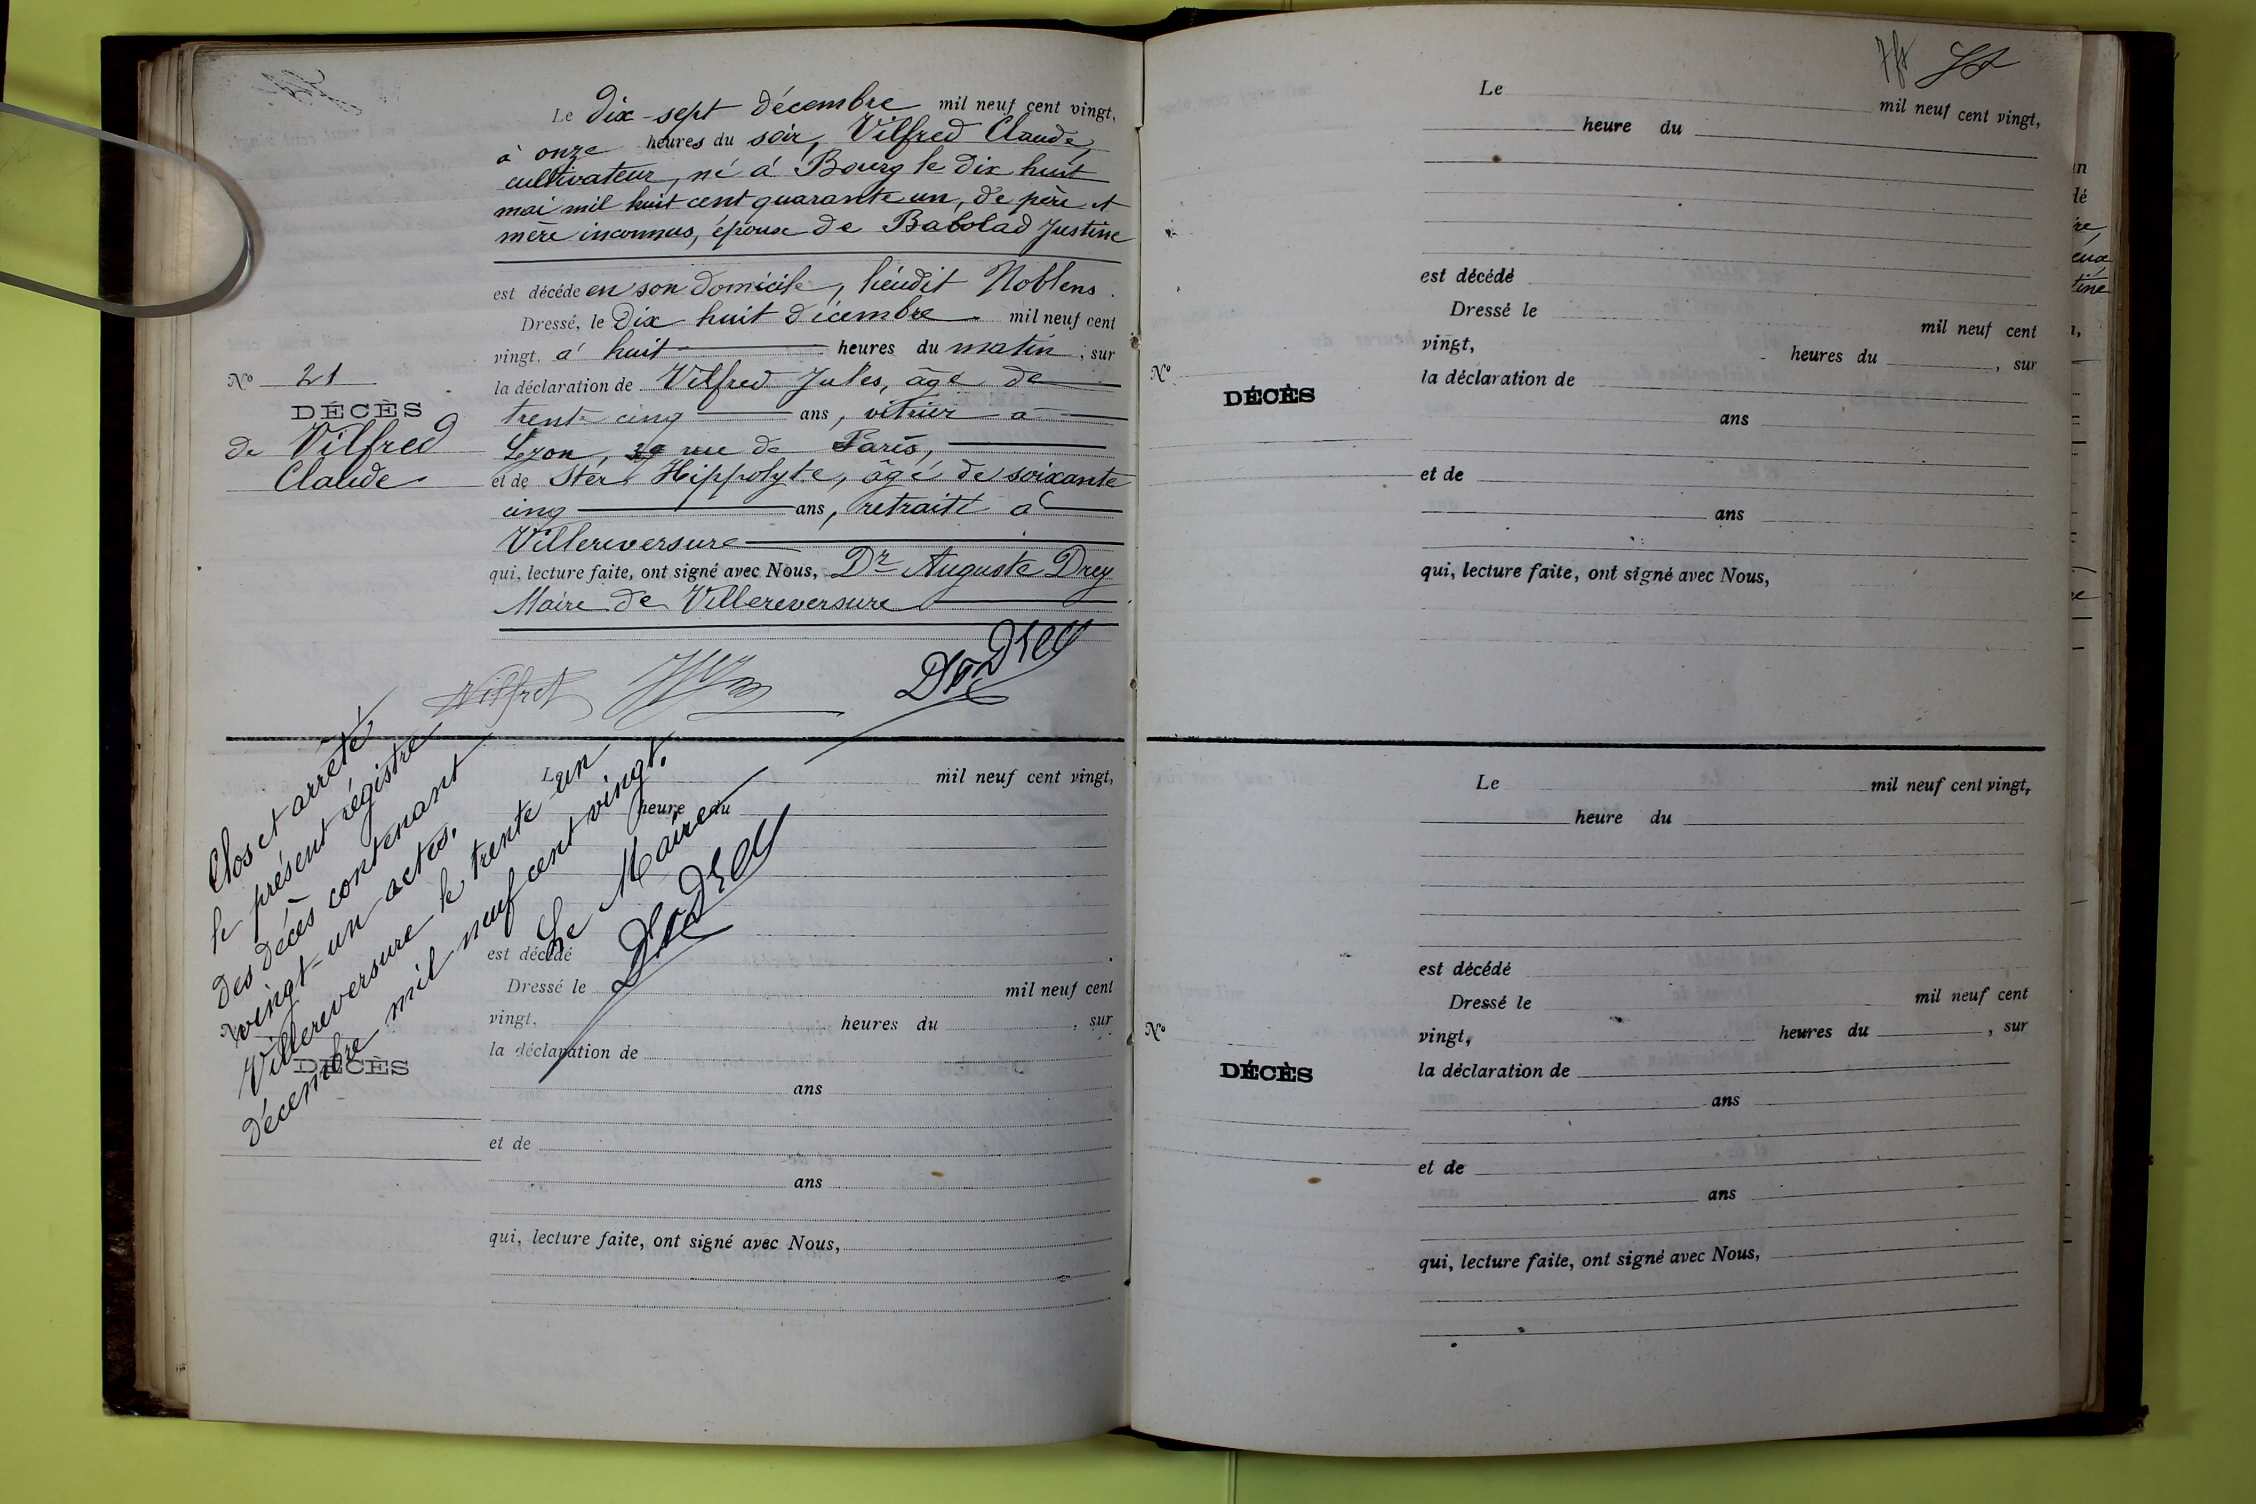 Le dix-sept décembre mil neuf cent vingt,
à onze heures du soir, Vilfred Claude,
cultivateur, né à Bourg le dix huit
mai mil huit cent quarante un, de père et
mère inconnus, époux de Babolad Justine
est décédé en son domicile, lieudit Noblens.
Dressé, le dix huit décembre mil neuf cent
vingt, à huit heures du matin, sur
la déclaration de Vilfred Jules, âgé de
trente cinq ans, vitrier à
Lyon, 39 rue de Paris,
et de Stér Hippolyte, âgé de soixante
cinq ans, retraité à
Villereversure
qui, lecture faite, ont signé avec Nous, Dr Auguste Drey
Maire de Villereversure
Nº 21
DÉCÈS
de Vilfred
Claude
Vilfred
Clos et arrêté
le présent régistre
des décès contenant
vingt-un actes.
Villereversure le trente un
décembre mil neuf cent vingt.
Le Maire
Dr Drey
Le mil neuf cent vingt,
heure du
est décédé
Dressé le mil neuf cent
vingt, heures du , sur
la déclaration de
ans
et de
ans
qui, lecture faite, ont signé avec Nous,
Nº
DÉCÈS
Le mil neuf cent vingt,
heure du
est décédé
Dressé le mil neuf cent
vingt, heures du , sur
la déclaration de
ans
et de
ans
qui, lecture faite, ont signé avec Nous,
Nº
DÉCÈS
Le mil neuf cent vingt,
heure du
est décédé
Dressé le mil neuf cent
vingt, heures du , sur
la déclaration de
ans
et de
ans
qui, lecture faite, ont signé avec Nous,
Nº
DÉCÈS